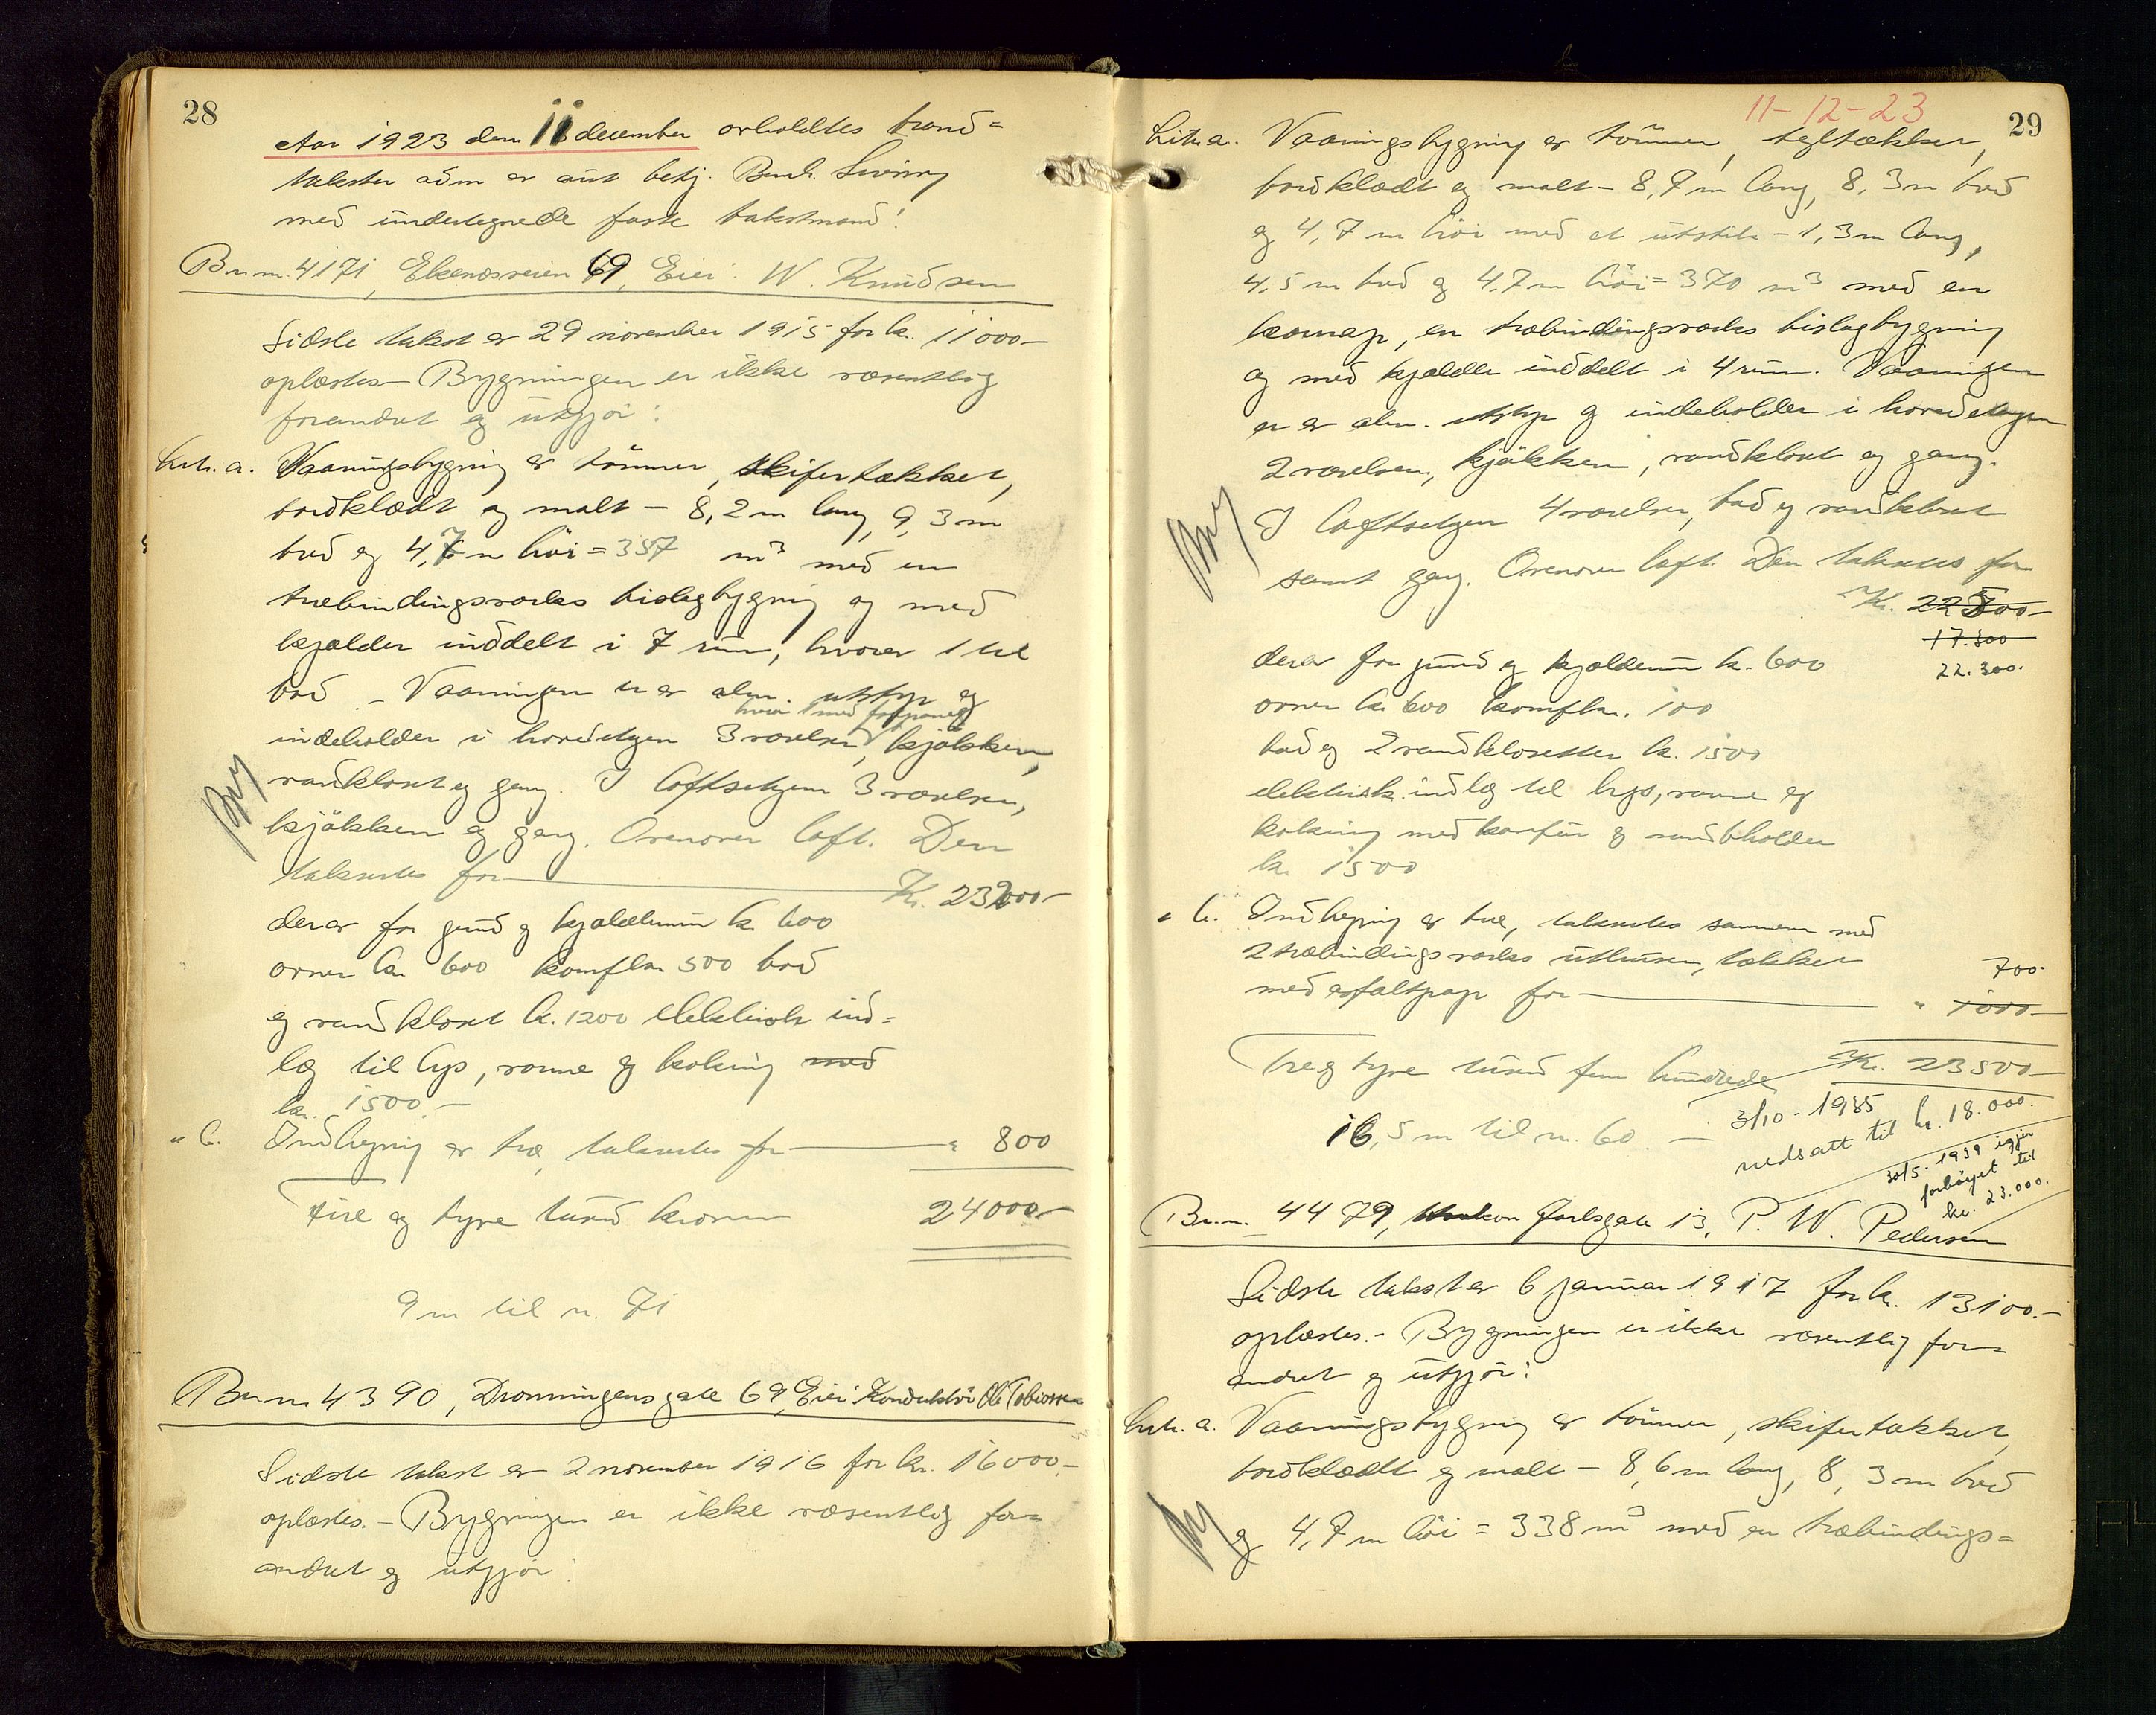 28
Aar 1923 den 11 december avholdtes brand=
takster adm av aut betj. Bernh.
med undertegnede faste takstmænd:
Br.nr. 4171, Ekenæsveien 69, Eier: W. Knudsen
Sidste takst av 29 november 1915 for kr. 11000-
oplæstes - Bygningen er ikke væsentlig
forandret og utgjør:
Litr. a. Vaaningsbygning av tømmer, skifertækket,
bordklædt og malt - 8,2 m lang, 9,3 m
bred og 4,7 m høi = 357 m3 med en
træbindingsverks bislagbygning og med
kjælder inddelt i 7 rum, hvorav 1 til
bad. - Vaaningen er av alm. utstyr og
hvorav 1 med
indeholder i hovedetagen 3 værelser, kjøkken,
vandkloset og gang. I loftsetagen 3 værelser,
kjøkken og gang. Ovenover loft. Den
takseres for Kr. 23200-
derav for grund og kjældermur kr. 600
ovner kr. 600 komfyr 500 bad
og vandkloset kr. 1200 elektrisk ind=
læg til lys, varme og kokning med
kr. 1500.-
" b. Indhegning av træ, takseres for " 800
Fire og tyve tusind kroner 24000.-
9 m til n. 71
Br.nr. 4390, Dronningensgate 69, Eier: Konduktør Ole Tobiassen
Sidste takst av 2 november 1916 for kr. 16000.-
oplæstes. - Bygningen er ikke væsentlig for=
andret og utgjør:
11-12-23
29
Litr. a. Vaaningsbygning av tømmer, tegltækket,
bordklædt og malt - 8,7 m lang, 8,3 m bred
og 4,7 m høi med et utstik - 1,3 m lang,
4,5 m bred og 4,7 m høi = 370 m3 med en
karnap, en træbindingsverks bislagbygning
og med kjælder inddelt i 4 rum. Vaaningen
er av alm. utstyr og indeholder i hovedetagen
2 værelser, kjøkken, vandkloset og gang.
I loftsetagen 4 værelser, bad og vandkloset
samt gang. Ovenover loft. Den takseres for
Kr. 22500-
17.300
22.300.
derav for grund og kjældermur kr. 600
ovner kr. 600 komfyr. 100
bad og 2 vandklosetter kr. 1500
elektrisk. indlæg til lys, varme og
kokning med komfyr og vandbeholder
kr. 1500
" b. Indhegning av træ, takseres sammen med
2 træbindingsverks uthuse, tækket
med asfaltpap for " 1000.-
700.-
Tre og tyve tusind fem hundrede Kr. 23500.-
16,5 m til n. 60 -
3/10 - 1935
nedsatt til kr. 18.000.
30/5 - 1939 igjen
forhøiet til
kr. 23.000.
Br.nr. 4479, Haakon Jarlsgate 13, P. W. Pedersen
Sidste takst av 6 januar 1917 for kr. 13100.-
oplæstes. - Bygningen er ikke væsentlig for=
andret og utgjør:
Litr. a. Vaaningsbygning av tømmer, skifertækket,
bordklædt og malt - 8,6 m lang, 8,3 m bred
og 4,7 m høi = 338 m3 med en træbindings=